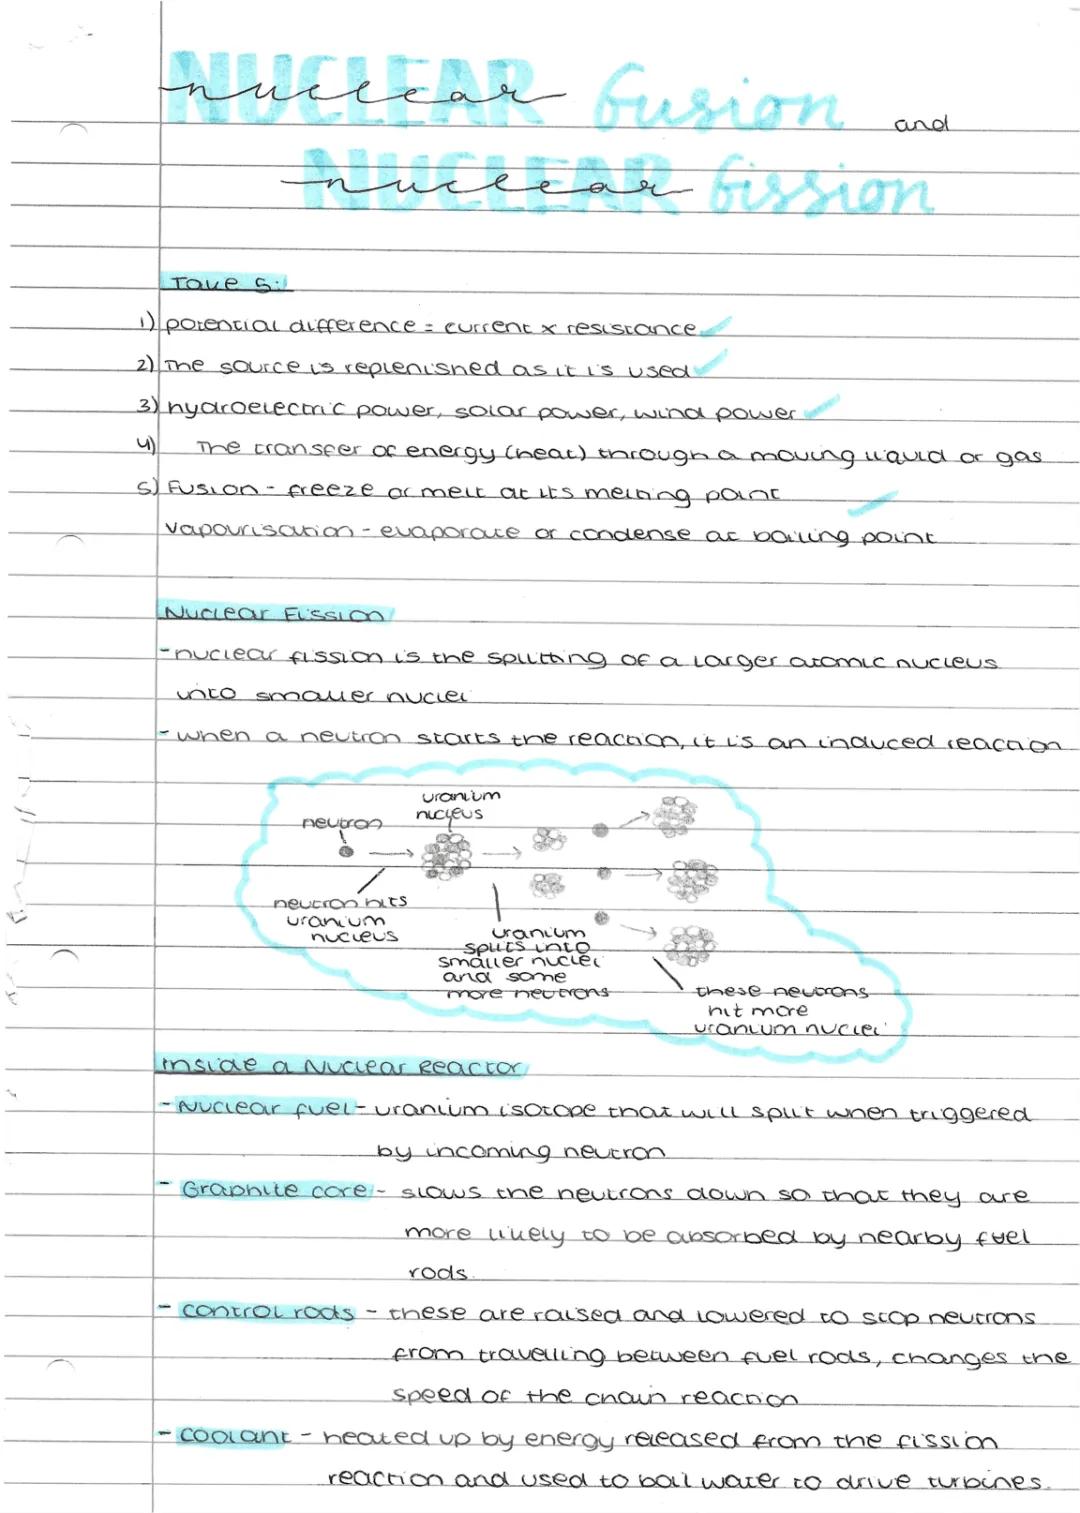 NUCLEAR nuclear fusion and
NUCLEAR nuclear fission
Take 5:
1) potential difference = current x resistance
2) The source is replenished as it is used
3) hydroelectric power, solar power, wind power
4) The transfer of energy (heat) through a moving liquid or gas
5) Fusion - freeze or melt at its melting point
Vapourisation - evaporate or condense at boiling point
Nuclear Fission
- nuclear fission is the splitting of a larger atomic nucleus
into smaller nuclei
- when a neutron starts the reaction, it is an induced reaction
uranium
nucleus
neutron
neutron hits
uranium
nucleus
uranium
splits into
smaller nuclei
and some
more neutrons
these neutrons
hit more
uranium nuclei
Inside a Nuclear Reactor
- Nuclear fuel - uranium isotope that will split when triggered
by incoming neutron
- Graphite core - slows the neutrons down so that they are
more likely to be absorbed by nearby fuel
rods.
- control rods - these are raised and lowered to stop neutrons
from travelling between fuel rods, changes the
speed of the chain reaction
- coolant - heated up by energy released from the fission
reaction and used to boil water to drive turbines.